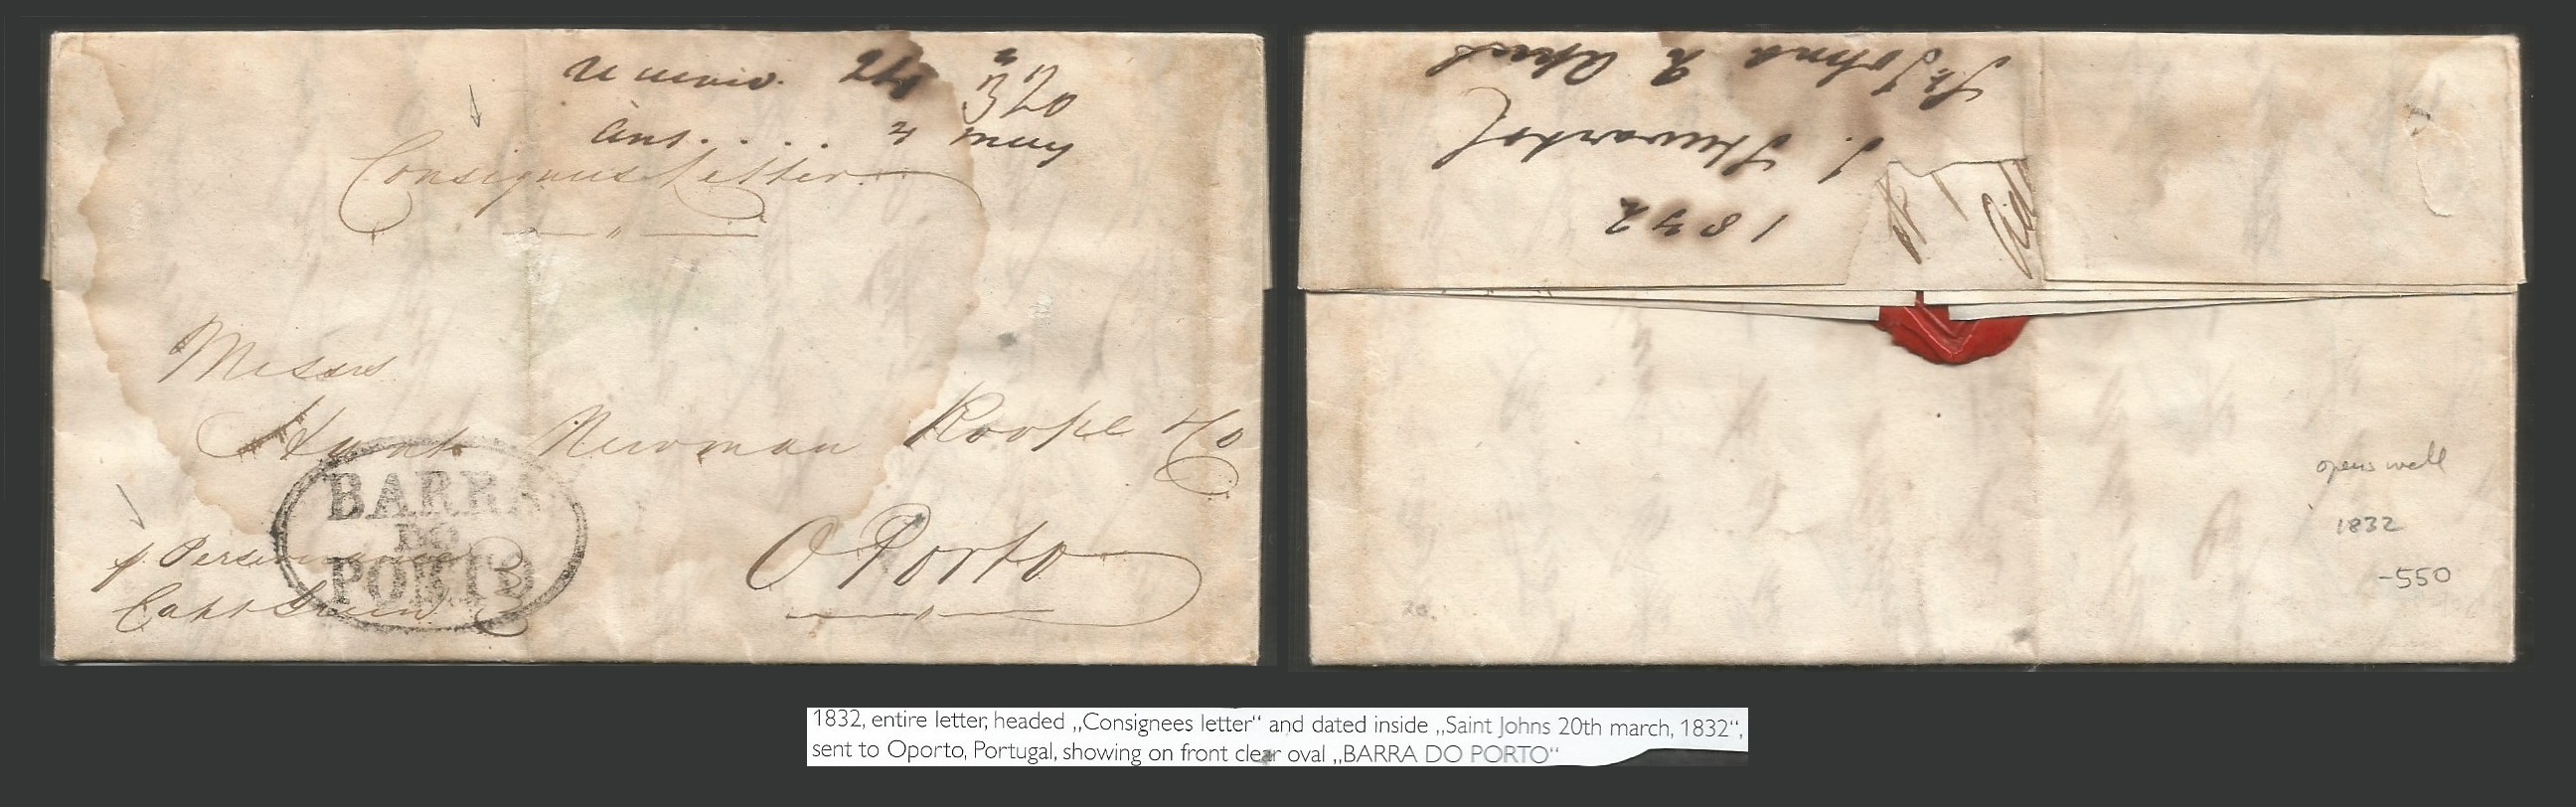 320
ans. . . . 4 may
Consignees Letter
Messrs
Hunt Newman Roope & Co
O Porto
BARRA
DO
PORTO
Capt Green
St. Johns 2 April
J. Stewart
1832
opens well
1832
-550
1832, entire letter, headed „Consignees letter“ and dated inside „Saint Johns 20th march, 1832“,
sent to Oporto, Portugal, showing on front clear oval „BARRA DO PORTO“